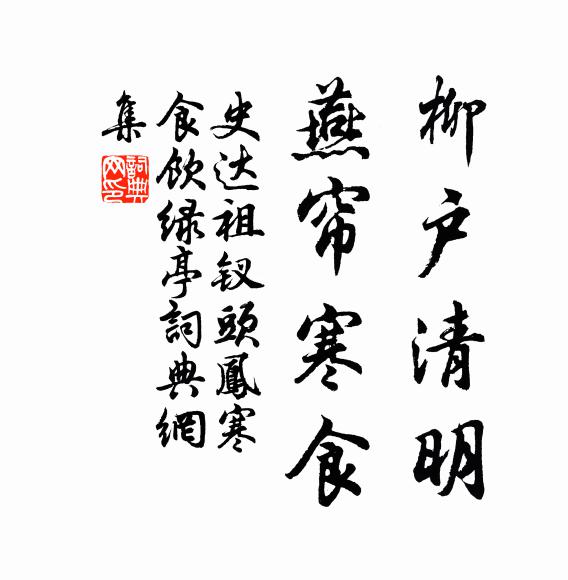 柳户清明
燕帘寒食
史达祖钗頭鳳寒
食飲绿亭詞典網
集
詞典網印